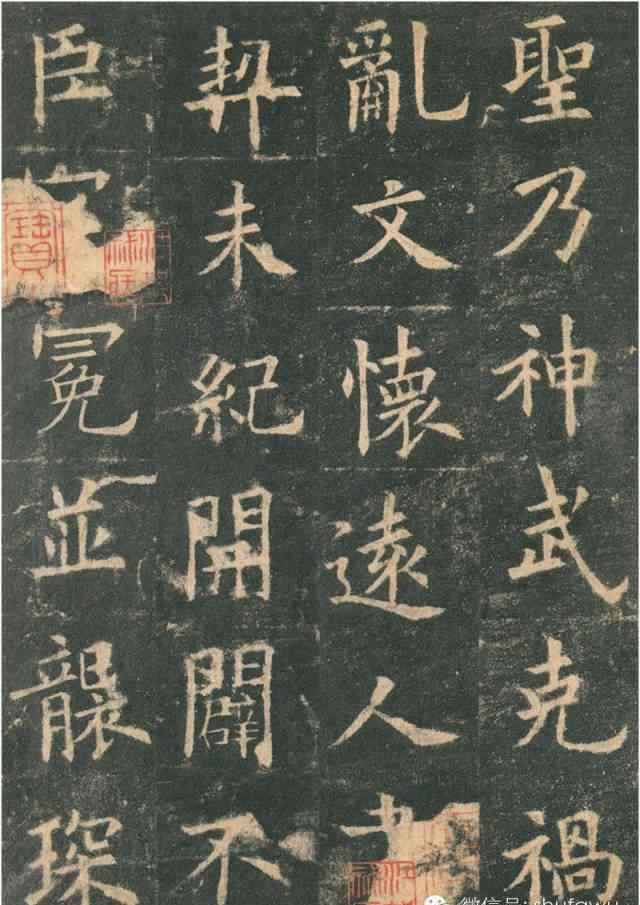 聖乃神武克禍
亂文懷遠人
契未紀開闢不
臣冕並襲琛
微信号: shufawu